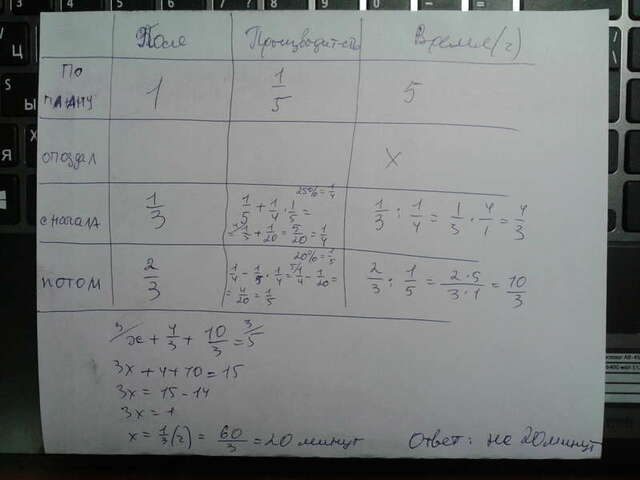 Поле Производит-сть Время(ч)
По плану 1 1/5 5
опоздал x
сначала 1/3 25% = 1/4
1/5 + 1/4 · 1/5 =
= 4/5 + 1/20 = 5/20 = 1/4
1/3 : 1/4 = 1/3 · 4/1 = 4/3
потом 2/3 20% = 1/5
1/4 - 1/5 · 1/4 = 5/4 - 1/20 =
= 4/20 = 1/5
2/3 : 1/5 = 2·5/3·1 = 10/3
3/ x + 4/3 + 10/3 = 3/5
3x + 4 + 10 = 15
3x = 15 - 14
3x = 1
x = 1/3 (ч) = 60/3 = 20 минут
Ответ: на 20 минут